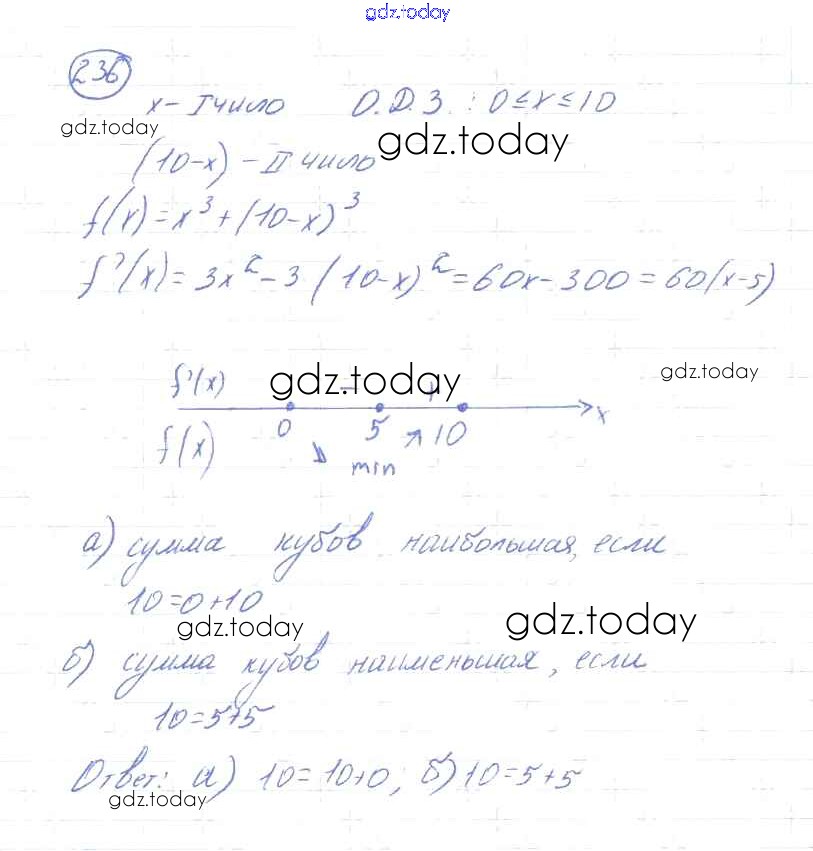 gdz.today
236
x - I число О.Д.З. : 0 ≤ x ≤ 10
gdz.today
gdz.today
(10-x) - II число
f(x) = x³ + (10-x)³
f'(x) = 3x² - 3(10-x)² = 60x - 300 = 60(x-5)
f'(x) gdz.today - + gdz.today
0 5 10 x
f(x) ↘ min ↗
а) сумма кубов наибольшая, если
10=0+10
gdz.today gdz.today
б) сумма кубов наименьшая, если
10=5+5
Ответ: а) 10=10+0; б) 10=5+5
gdz.today